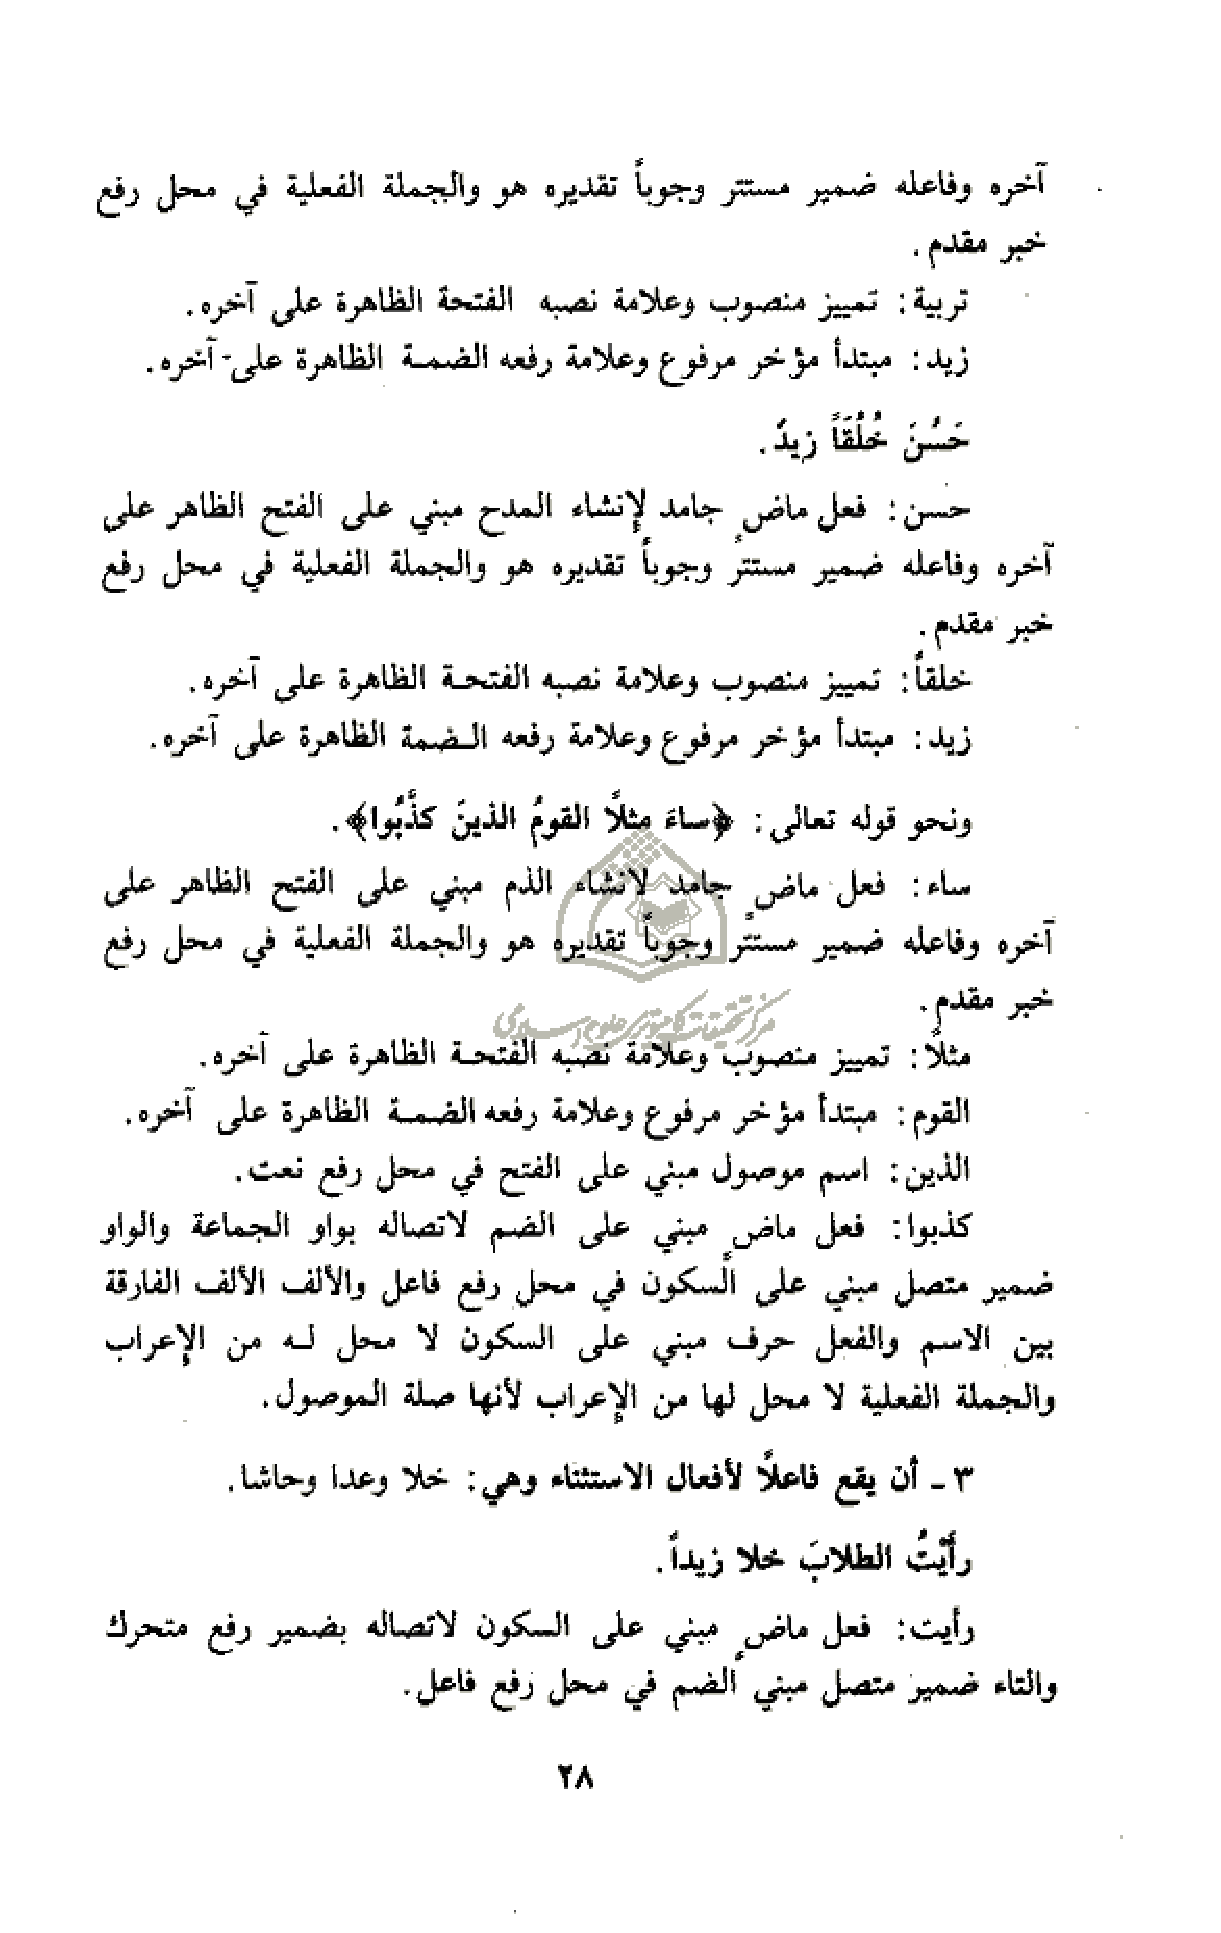 آخره وفاعله ضمير مستتر وجوباً تقديره هو والجملة الفعلية في محل رفع
خبر مقدم.
تربية: تمييز منصوب وعلامة نصبه الفتحة الظاهرة على آخره.
زيد: مبتدأ مؤخر مرفوع وعلامة رفعه الضمة الظاهرة على آخره.
حَسُنَ خُلُقَاً زيدٌ.
حسن: فعل ماضٍ جامد لإنشاء المدح مبني على الفتح الظاهر على
آخره وفاعله ضمير مستتر وجوباً تقديره هو والجملة الفعلية في محل رفع
خبر مقدم.
خلقاً: تمييز منصوب وعلامة نصبه الفتحة الظاهرة على آخره.
زيد: مبتدأ مؤخر مرفوع وعلامة رفعه الضمة الظاهرة على آخره.
ونحو قوله تعالى: ﴿ساءَ مثلًا القومُ الذينَ كذَّبُوا﴾.
ساء: فعل ماضٍ جامد لانشاء الذم مبني على الفتح الظاهر على
آخره وفاعله ضمير مستتر وجوباً تقديره هو والجملة الفعلية في محل رفع
خبر مقدم.
مركز تحقیقات کامپیوتری علوم اسلامی
مثلًا: تمييز منصوب وعلامة نصبه الفتحة الظاهرة على آخره.
القوم: مبتدأ مؤخر مرفوع وعلامة رفعه الضمة الظاهرة على آخره.
الذين: اسم موصول مبني على الفتح في محل رفع نعت.
كذبوا: فعل ماضٍ مبني على الضم لاتصاله بواو الجماعة والواو
ضمير متصل مبني على السكون في محل رفع فاعل والألف الألف الفارقة
بين الاسم والفعل حرف مبني على السكون لا محل له من الإعراب
والجملة الفعلية لا محل لها من الإعراب لأنها صلة الموصول.
٣ ـ أن يقع فاعلًا لأفعال الاستثناء وهي: خلا وعدا وحاشا.
رأَيْتُ الطلابَ خلا زيداً.
رأيت: فعل ماضٍ مبني على السكون لاتصاله بضمير رفع متحرك
والتاء ضمير متصل مبني الضم في محل رفع فاعل.
٢٨